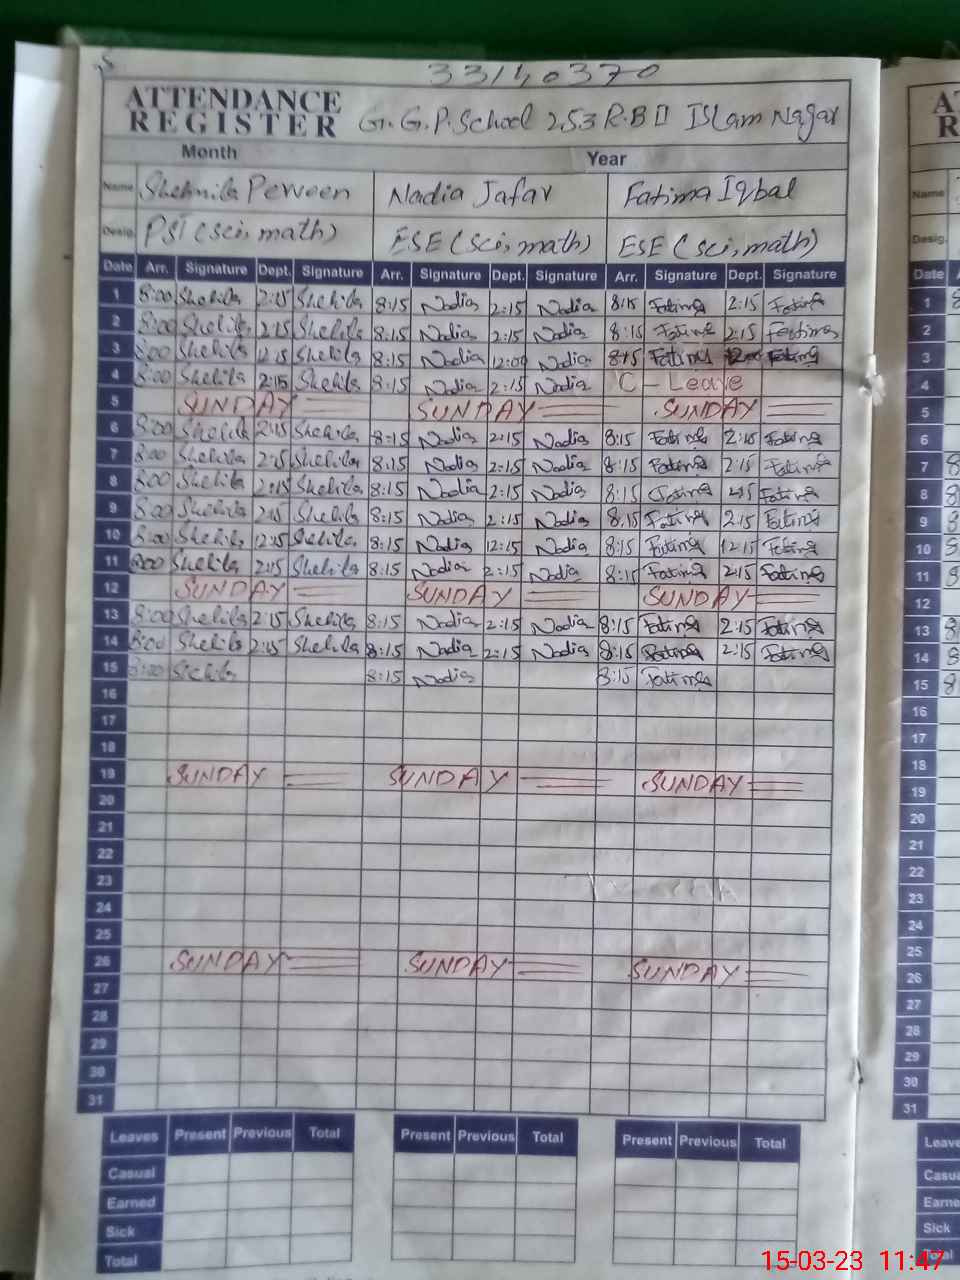 33140370
ATTENDANCE
REGISTER G.G.P.School 253 R.B II Islam Nagar
Month Year
Name Shehnila Perveen Nadia Jafar Fatima Iqbal
Desig. PST (sci, math) ESE (sci, math) ESE (sci, math)
Date Arr. Signature Dept. Signature Arr. Signature Dept. Signature Arr. Signature Dept. Signature
1 8:00 Shelila 2:15 Shelila 8:15 Nadia 2:15 Nadia 8:15 Fatima 2:15 Fatima
2 8:00 Shelila 2:15 Shelila 8:15 Nadia 2:15 Nadia 8:15 Fatima 2:15 Fatima
3 8:00 Shelila 12:15 Shelila 8:15 Nadia 12:00 Nadia 8:15 Fatima Fatima
4 8:00 Shelila 2:15 Shelila 8:15 Nadia 2:15 Nadia C - Leave
5 SUNDAY SUNDAY SUNDAY
6 8:00 Shelila 2:15 Shelila 8:15 Nadia 2:15 Nadia 8:15 Fatima 2:15 Fatima
7 8:00 Shelila 2:15 Shelila 8:15 Nadia 2:15 Nadia 8:15 Fatima 2:15 Fatima
8 8:00 Shelila 2:15 Shelila 8:15 Nadia 2:15 Nadia 8:15 Fatima 2:15 Fatima
9 8:00 Shelila 2:15 Shelila 8:15 Nadia 2:15 Nadia 8:15 Fatima 2:15 Fatima
10 8:00 Shelila 12:15 Shelila 8:15 Nadia 12:15 Nadia 8:15 Fatima 12:15 Fatima
11 8:00 Shelila 2:15 Shelila 8:15 Nadia 2:15 Nadia 8:15 Fatima 2:15 Fatima
12 SUNDAY SUNDAY SUNDAY
13 8:00 Shelila 2:15 Shelila 8:15 Nadia 2:15 Nadia 8:15 Fatima 2:15 Fatima
14 8:00 Shelila 2:15 Shelila 8:15 Nadia 2:15 Nadia 8:15 Fatima 2:15 Fatima
15 8:00 Shelila 8:15 Nadia 8:15 Fatima
16
17
18
19 SUNDAY SUNDAY SUNDAY
20
21
22
23
24
25
26 SUNDAY SUNDAY SUNDAY
27
28
29
30
31
Leaves Present Previous Total Present Previous Total Present Previous Total
Casual
Earned
Sick
Total
Name
Desig.
Date
1
2
3
4
5
6
7
8
9
10
11
12
13
14
15
16
17
18
19
20
21
22
23
24
25
26
27
28
29
30
31
Sick
Total
15-03-23 11:47